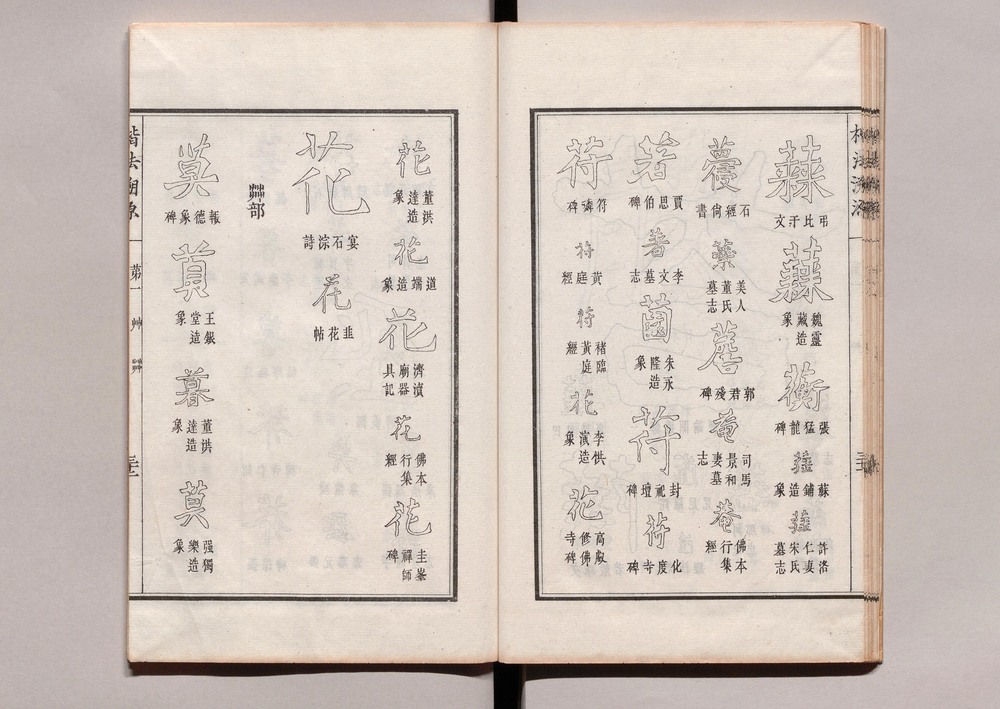 弔比干文
魏靈藏造象
衡 張猛龍碑
蘇鋪造象
許洛仁妻宋氏墓志
石經尚書
美人董氏墓志
郭君殘碑
菴 司馬景和妻墓志
菴 佛本行集經
著 賈思伯碑
著 李文墓志
菌 朱永隆造象
苻 封祀壇碑
苻 化度寺碑
苻 符璘碑
苻 黃庭經
苻 褚臨黃庭經
花 李演造象
花 高叡修佛寺碑
花 董洪達造象
花 道端造象
花 濟瀆廟器具記
花 佛本行集經
花 圭峯禪師碑
花 宴石淙詩
花 韭花帖
茻部
莫 報德象碑
莫 王銀堂造象
暮 董洪達造象
莫 强獨樂造象
楷法溯源 第一 艸 茻